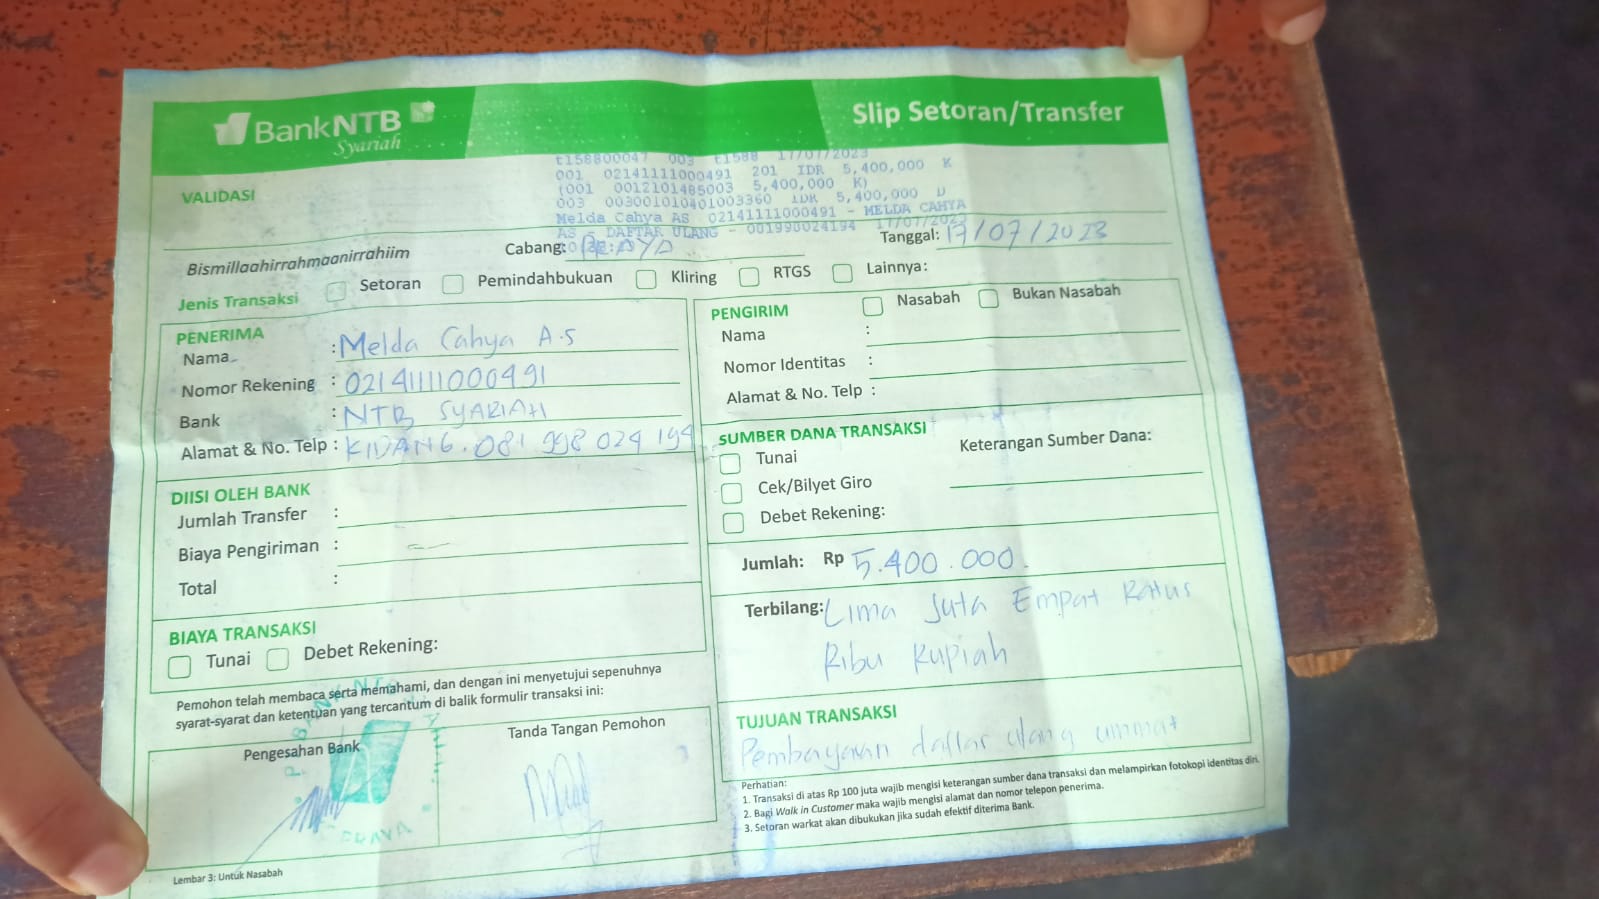 BankNTB
Syariah
Slip Setoran/Transfer
t158800047 003 t1588 17/07/2023
001 02141111000491 201 IDR 5,400,000 K
(001 0012101485003 5,400,000 K)
003 003001010401003360 IDR 5,400,000 D
Melda Cahya AS 02141111000491 - MELDA CAHYA
AS - DAFTAR ULANG - 001990024194 17/07/2023
VALIDASI
Bismillaahirrahmaanirrahiim
Cabang: PRAYA
Tanggal: 17/07/2023
Jenis Transaksi Setoran Pemindahbukuan Kliring RTGS Lainnya:
PENERIMA
Nama : Melda Cahya A.S
Nomor Rekening : 02141111000491
Bank : NTB SYARIAH
Alamat & No. Telp : KIDANG. 081 998 024 194
DIISI OLEH BANK
Jumlah Transfer :
Biaya Pengiriman :
Total :
BIAYA TRANSAKSI
Tunai Debet Rekening:
Pemohon telah membaca serta memahami, dan dengan ini menyetujui sepenuhnya
syarat-syarat dan ketentuan yang tercantum di balik formulir transaksi ini:
Pengesahan Bank
Tanda Tangan Pemohon
PRAYA
Lembar 3: Untuk Nasabah
PENGIRIM Nasabah Bukan Nasabah
Nama :
Nomor Identitas :
Alamat & No. Telp :
SUMBER DANA TRANSAKSI
Tunai
Cek/Bilyet Giro
Debet Rekening:
Keterangan Sumber Dana:
Jumlah: Rp 5.400.000.
Terbilang: Lima Juta Empat Ratus
Ribu Rupiah
TUJUAN TRANSAKSI
Pembayaran daftar ulang ummat
Perhatian:
1. Transaksi di atas Rp 100 juta wajib mengisi keterangan sumber dana transaksi dan melampirkan fotokopi identitas diri.
2. Bagi Walk in Customer maka wajib mengisi alamat dan nomor telepon penerima.
3. Setoran warkat akan dibukukan jika sudah efektif diterima Bank.